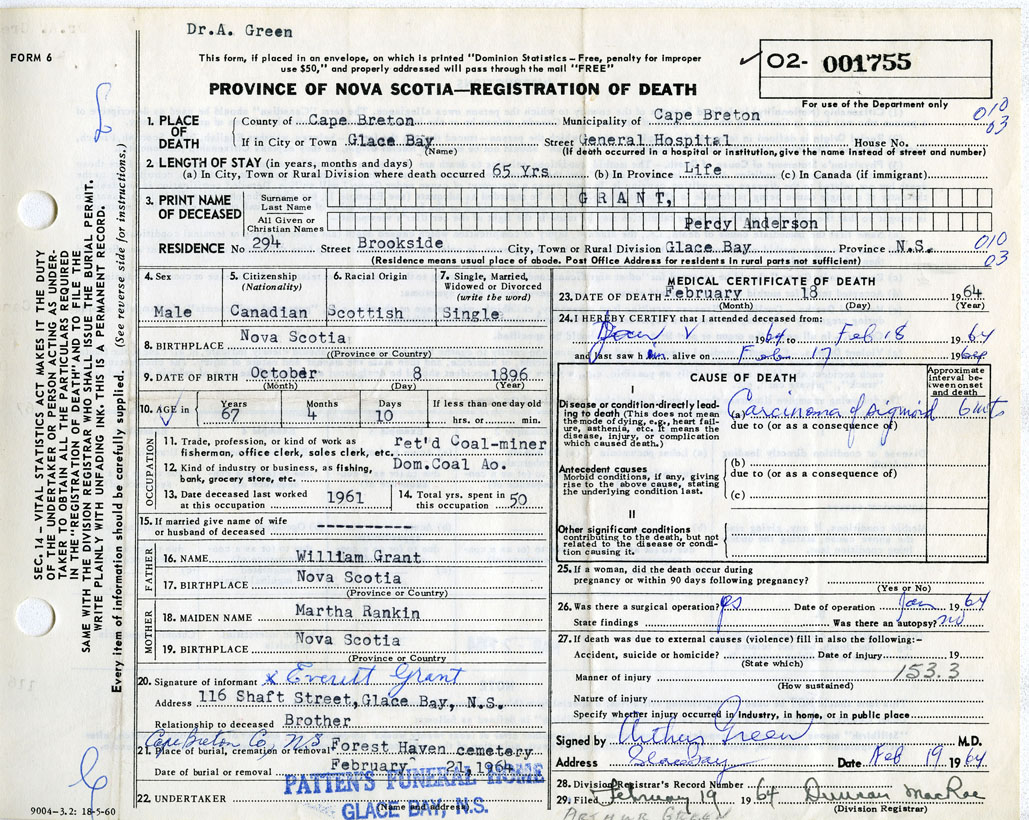 Dr.A. Green
FORM 6
This form, if placed in an envelope, on which is printed "Dominion Statistics – Free, penalty for improper
use $50," and properly addressed will pass through the mail "FREE"
✓ 02- 001755
PROVINCE OF NOVA SCOTIA—REGISTRATION OF DEATH
For use of the Department only
1. PLACE OF DEATH
County of Cape Breton Municipality of Cape Breton 010
If in City or Town Glace Bay Street General Hospital House No. 03
(Name) (If death occurred in a hospital or institution, give the name instead of street and number)
2. LENGTH OF STAY (in years, months and days)
(a) In City, Town or Rural Division where death occurred 65 Yrs (b) In Province Life (c) In Canada (if immigrant)
3. PRINT NAME OF DECEASED
Surname or Last Name GRANT,
All Given or Christian Names Percy Anderson
RESIDENCE No 294 Street Brookside City, Town or Rural Division Glace Bay Province N.S. 010
03
(Residence means usual place of abode. Post Office Address for residents in rural parts not sufficient)
4. Sex
Male
5. Citizenship
(Nationality)
Canadian
6. Racial Origin
Scottish
7. Single, Married,
Widowed or Divorced
(write the word)
Single
8. BIRTHPLACE Nova Scotia
((Province or Country)
9. DATE OF BIRTH October 8 1896
(Month) (Day) (Year)
10. AGE in Years Months Days If less than one day old
67 4 10 hrs. or min.
OCCUPATION
11. Trade, profession, or kind of work as
fisherman, office clerk, sales clerk, etc. ret'd Coal-miner
12. Kind of industry or business, as fishing,
bank, grocery store, etc. Dom.Coal Ao.
13. Date deceased last worked
at this occupation 1961
14. Total yrs. spent in
this occupation 50
15. If married give name of wife
or husband of deceased -----------
FATHER
16. NAME William Grant
17. BIRTHPLACE Nova Scotia
(Province or Country)
MOTHER
18. MAIDEN NAME Martha Rankin
19. BIRTHPLACE Nova Scotia
(Province or Country)
20. Signature of informant x Everett Grant
Address 116 Shaft Street, Glace Bay, N.S.
Relationship to deceased Brother
Cape Breton Co, N.S
21. Place of burial, cremation or removal Forest Haven cemetery
Date of burial or removal February 21, 1964
PATTEN'S FUNERAL HOME
22. UNDERTAKER
(Name and address)
GLACE BAY, N.S.
9004-3.2: 18-5-60
MEDICAL CERTIFICATE OF DEATH
23. DATE OF DEATH February 18 1964
(Month) (Day) (Year)
24. I HEREBY CERTIFY that I attended deceased from:
1964 to Feb 18 1964
and last saw him alive on Feb 17 1964
CAUSE OF DEATH
Approximate
interval be-
tween onset
and death
I
Disease or condition directly lead-
ing to death (This does not mean
the mode of dying, e.g., heart fail-
ure, asthenia, etc. It means the
disease, injury, or complication
which caused death.)
(a) Carcinoma of sigmoid 6 mts
due to (or as a consequence of)
Antecedent causes
Morbid conditions, if any, giving
rise to the above cause, stating
the underlying condition last.
(b)
due to (or as a consequence of)
(c)
II
Other significant conditions
contributing to the death, but not
related to the disease or condi-
tion causing it.
25. If a woman, did the death occur during
pregnancy or within 90 days following pregnancy?
(Yes or No)
26. Was there a surgical operation? yes Date of operation Jan 1964
State findings Was there an autopsy? no
27. If death was due to external causes (violence) fill in also the following:-
Accident, suicide or homicide? Date of injury 19
(State which)
Manner of injury 153.3
(How sustained)
Nature of injury
Specify whether injury occurred in industry, in home, or in public place
Signed by Arthur Green M.D.
Address Glace Bay Date Feb 19 1964
28. Division Registrar's Record Number
29. Filed February 19 1964 Duncan MacRae
(Division Registrar)
ARTHUR GREEN
SEC. 14 – VITAL STATISTICS ACT MAKES IT THE DUTY
OF THE UNDERTAKER OR PERSON ACTING AS UNDER-
TAKER TO OBTAIN ALL THE PARTICULARS REQUIRED
IN THE "REGISTRATION OF DEATH" AND TO FILE THE
SAME WITH THE DIVISION REGISTRAR WHO SHALL ISSUE THE BURIAL PERMIT.
WRITE PLAINLY WITH UNFADING INK. THIS IS A PERMANENT RECORD.
Every item of information should be carefully supplied. (See reverse side for instructions.)